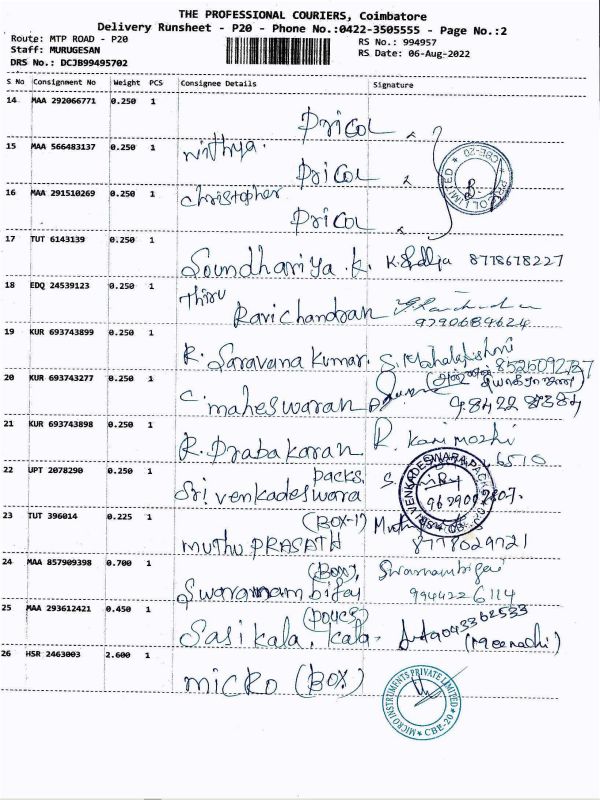 THE PROFESSIONAL COURIERS, Coimbatore
Delivery Runsheet - P20 - Phone No.:0422-3505555 - Page No.:2
Route: MTP ROAD - P20
RS No.: 994957
Staff: MURUGESAN
RS Date: 06-Aug-2022
DRS No.: DCJB99495702
S No Consignment No Weight PCS Consignee Details Signature
14 MAA 292066771 0.250 1
Pricol
15 MAA 566483137 0.250 1
Nithya.
Pricol
PRICOL LIMITED ★ CBE-20 ★
16 MAA 291510269 0.250 1
Christopher
Pricol
17 TUT 6143139 0.250 1
Soundhariya.K. 8778678227
18 EDQ 24539123 0.250 1
Thiru
Ravichandran
9790684624
19 KUR 693743899 0.250 1
R. Saravana Kumar. S. Mahalakshmi
8526092787
20 KUR 693743277 0.250 1
C. maheswaran
21 KUR 693743898 0.250 1
R. Prabakaran R. Kanimozhi
6510
22 UPT 2078290 0.250 1
Packs.
Sri venkadeswara
SRI VENKADESWARA PACKS
23 TUT 396014 0.225 1
(BOX-1)
MUTHU PRASATH
8778029721
24 MAA 857909398 0.700 1
(Box)
Swarnambigai Swarnambigai
9944226114
25 MAA 293612421 0.450 1
Sasikala. Kala. 9043362533
(Meenachi)
26 HSR 2463003 2.600 1
micro (Box)
MICRO INSTRUMENTS PRIVATE LIMITED
★ CBE-20 ★